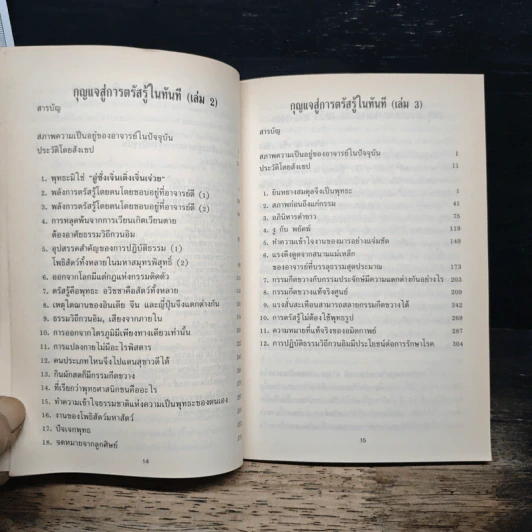 กุญแจสู่การตรัสรู้ในทันที (เล่ม 2)
สารบัญ
สภาพความเป็นอยู่ของอาจารย์ในปัจจุบัน
ประวัติโดยสังเขป
1. พุทธะมิใช่ "อู๋ซั่งเจิ้นเติ่งเจิ้นเจ๋วย"
2. พลังการตรัสรู้ตนโดยตนโดยชอบอยู่ที่อาจารย์ดี (1)
3. พลังการตรัสรู้ตนโดยตนโดยชอบอยู่ที่อาจารย์ดี (2)
4. การหลุดพ้นจากการเวียนเกิดเวียนตาย
ต้องอาศัยธรรมวิถีกวนอิม
5. อุปสรรคสำคัญของการปฏิบัติธรรม (1)
โพธิสัตว์ทั้งหลายในมหาสมุทรพิสุทธิ์ (2)
6. ออกจากโลกมีแต่กฎแห่งกรรมติดตัว
7. ตรัสรู้คือพุทธะ อวิชชาคือสัตว์ทั้งหลาย
8. เหตุใดฌานของอินเดีย จีน และญี่ปุ่นจึงแตกต่างกัน
9. ธรรมวิถีกวนอิม, เสียงจากภายใน
10. การออกจากไตรภูมิมีเพียงทางเดียวเท่านั้น
11. การแปลงกายไม่มีอะไรพิสดาร
12. คนประเภทไหนจึงไปแดนสุขาวดีได้
13. กินผักสดก็มีกรรมกีดขวาง
14. ที่เรียกว่าพุทธศาสนิกชนคืออะไร
15. ทำความเข้าใจธรรมชาติแห่งความเป็นพุทธะของตนเอง
16. งานของโพธิสัตว์มหาสัตว์
17. ปัจเจกพุทธ
18. จดหมายจากลูกศิษย์
14
กุญแจสู่การตรัสรู้ในทันที (เล่ม 3)
สารบัญ
สภาพความเป็นอยู่ของอาจารย์ในปัจจุบัน 1
ประวัติโดยสังเขป 11
1. ยินหยางสมดุลจึงเป็นพุทธะ 17
2. สภาพก่อนถึงแก่กรรม 41
3. อภินิหารคำขาว 75
4. งู กับ พยัคฆ์ 119
5. ทำความเข้าใจงานของมารอย่างแจ่มชัด 149
6. แรงดึงดูดจากสนามแม่เหล็ก
ของอาจารย์ที่บรรลุธรรมสุดประมาณ 173
7. กรรมกีดขวางกับกรรมประจักษ์มีความแตกต่างกันอย่างไร 203
8. กรรมกีดขวางแท้จริงสูญ 209
9. แรงสั่นสะเทือนสามารถสลายกรรมกีดขวางได้ 243
10. การตรัสรู้ไม่ต้องใช้พุทธรูป 267
11. ความหมายที่แท้จริงของอมิตาภพ์ 287
12. การปฏิบัติธรรมวิถีกวนอิมมีประโยชน์ต่อการรักษาโรค 304
15